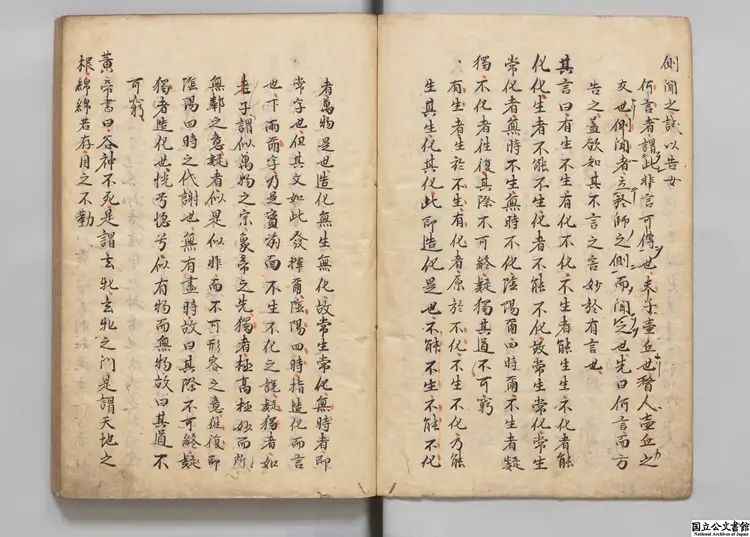 側聞之試以告女
何言者謂此非言可傳也夫子壺丘也瞀人壺丘之
友也側聞者立於師之側而聞之也先曰何言而方
告之蓋欲知其不言之言妙於有言也
其言曰有生不生有化不化不生者能生生不化者能
化化生者不能不生化者不能不化故常生常化常生
常化者無時不生無時不化陰陽爾四時爾不生者疑
獨不化者往復其際不可終疑獨其道不可窮
有生者生於不生有化者原於不化不生不化方能
生其生化其化此即造化是也不能不生不能不化
者萬物是也造化無生無化故常生常化無時者即
常字也但其文如此發揮爾陰陽四時指造化而言
也下兩爾字乃是前而不生不化之說疑獨者如
老子謂似萬物之宗象帝之先獨者極高極妙而所
無鄰之意疑者似是似非而不可形容之意往復即
陰陽四時之代謝也無有盡時故曰其際不可終疑
獨吾造化也恍兮惚兮似有物而無物故曰其道不
可窮
黃帝書曰谷神不死是謂玄牝玄牝之門是謂天地之
根綿綿若存用之不勤
国立公文書館
National Archives of Japan